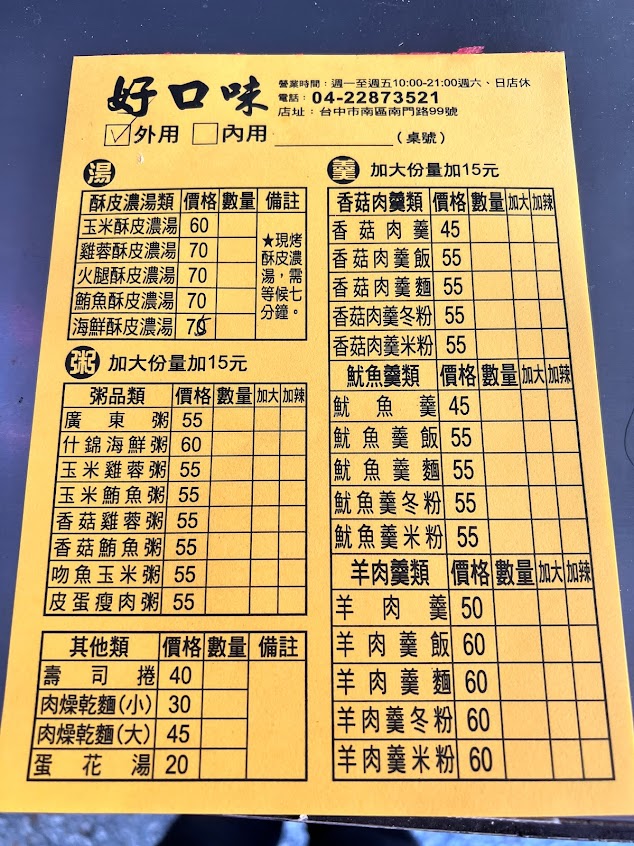 好口味
營業時間：週一至週五10:00-21:00週六、日店休
電話：04-22873521
店址：台中市南區南門路99號
☑外用 □內用 （桌號）
湯
酥皮濃湯類 價格 數量 備註
玉米酥皮濃湯 60
雞蓉酥皮濃湯 70
火腿酥皮濃湯 70
鮪魚酥皮濃湯 70
海鮮酥皮濃湯 75
★現烤
酥皮濃
湯，需
等候七
分鐘。
粥 加大份量加15元
粥品類 價格 數量 加大 加辣
廣東粥 55
什錦海鮮粥 60
玉米雞蓉粥 55
玉米鮪魚粥 55
香菇雞蓉粥 55
香菇鮪魚粥 55
吻魚玉米粥 55
皮蛋瘦肉粥 55
其他類 價格 數量 備註
壽司捲 40
肉燥乾麵(小) 30
肉燥乾麵(大) 45
蛋花湯 20
羹 加大份量加15元
香菇肉羹類 價格 數量 加大 加辣
香菇肉羹 45
香菇肉羹飯 55
香菇肉羹麵 55
香菇肉羹冬粉 55
香菇肉羹米粉 55
魷魚羹類 價格 數量 加大 加辣
魷魚羹 45
魷魚羹飯 55
魷魚羹麵 55
魷魚羹冬粉 55
魷魚羹米粉 55
羊肉羹類 價格 數量 加大 加辣
羊肉羹 50
羊肉羹飯 60
羊肉羹麵 60
羊肉羹冬粉 60
羊肉羹米粉 60